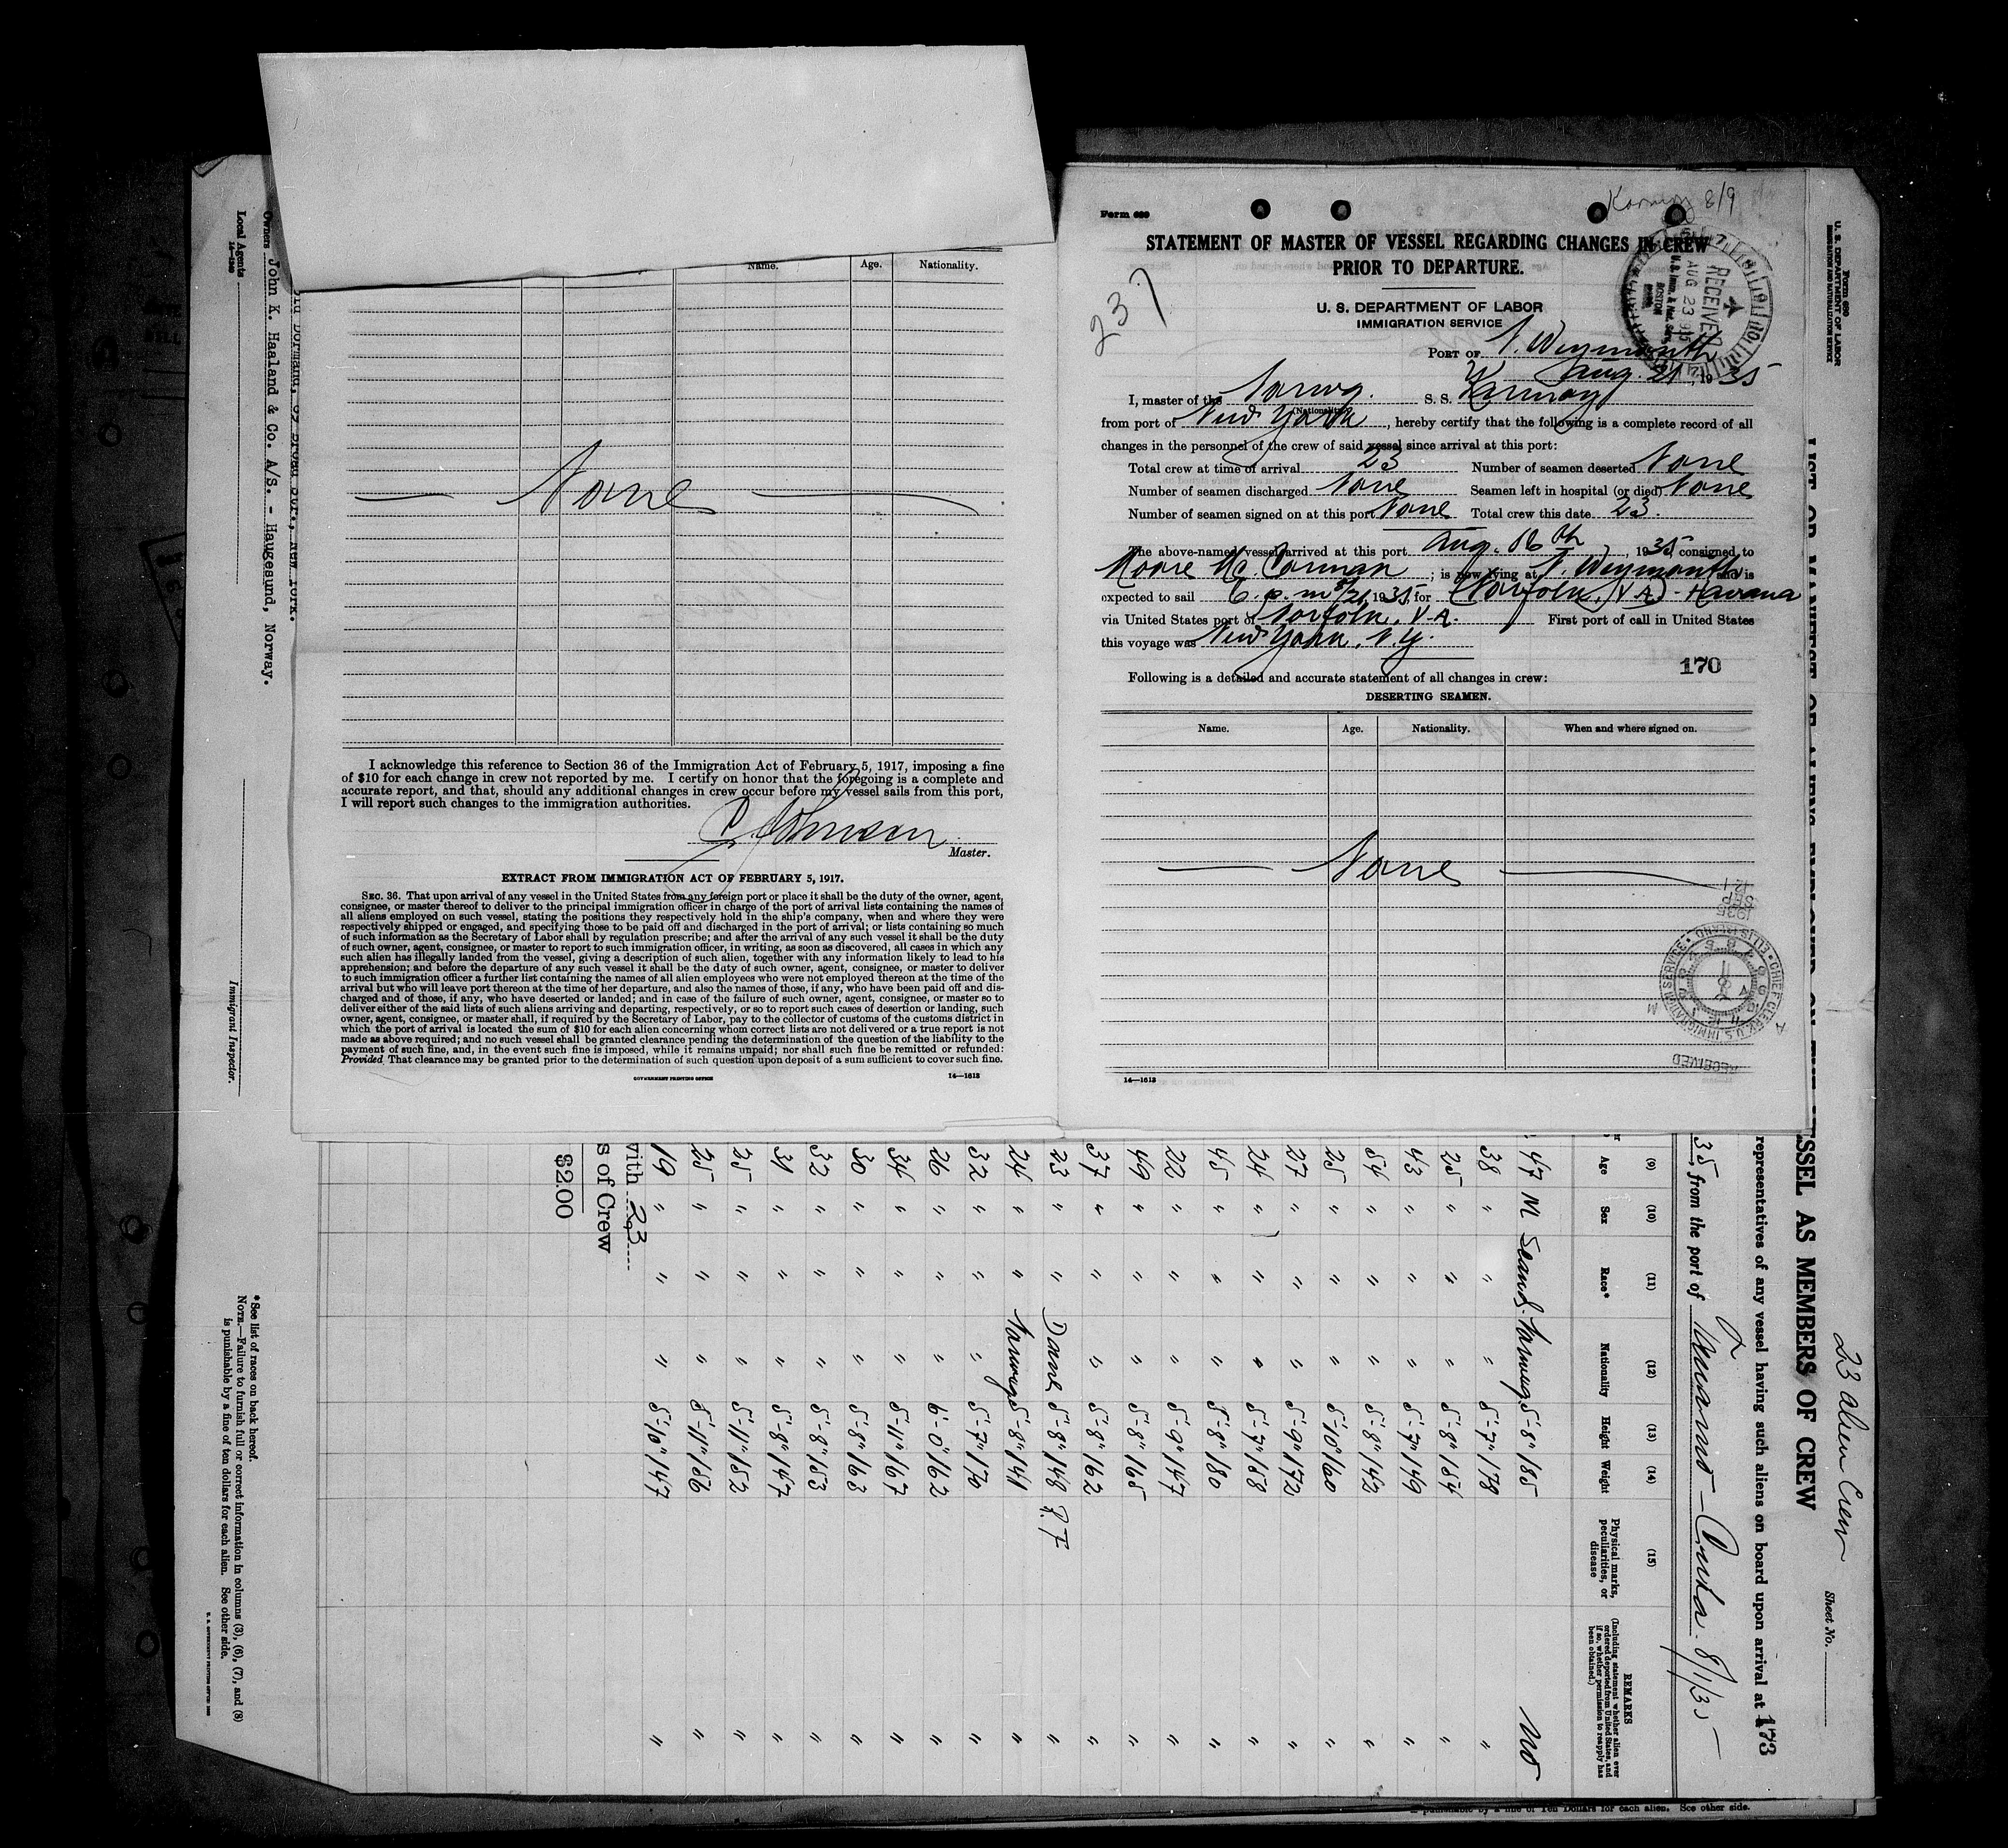 Name. Age. Nationality.
None
I acknowledge this reference to Section 36 of the Immigration Act of February 5, 1917, imposing a fine
of $10 for each change in crew not reported by me. I certify on honor that the foregoing is a complete and
accurate report, and that, should any additional changes in crew occur before my vessel sails from this port,
I will report such changes to the immigration authorities.
Johnson
Master.
EXTRACT FROM IMMIGRATION ACT OF FEBRUARY 5, 1917.
SEC. 36. That upon arrival of any vessel in the United States from any foreign port or place it shall be the duty of the owner, agent,
consignee, or master thereof to deliver to the principal immigration officer in charge of the port of arrival lists containing the names of
all aliens employed on such vessel, stating the positions they respectively hold in the ship's company, when and where they were
respectively shipped or engaged, and specifying those to be paid off and discharged in the port of arrival; or lists containing so much
of such information as the Secretary of Labor shall by regulation prescribe; and after the arrival of any such vessel it shall be the duty
of such owner, agent, consignee, or master to report to such immigration officer, in writing, as soon as discovered, all cases in which any
such alien has illegally landed from the vessel, giving a description of such alien, together with any information likely to lead to his
apprehension; and before the departure of any such vessel it shall be the duty of such owner, agent, consignee, or master to deliver
to such immigration officer a further list containing the names of all alien employees who were not employed thereon at the time of the
arrival but who will leave port thereon at the time of her departure, and also the names of those, if any, who have been paid off and dis-
charged and of those, if any, who have deserted or landed; and in case of the failure of such owner, agent, consignee, or master so to
deliver either of the said lists of such aliens arriving and departing, respectively, or so to report such cases of desertion or landing, such
owner, agent, consignee, or master shall, if required by the Secretary of Labor, pay to the collector of customs of the customs district in
which the port of arrival is located the sum of $10 for each alien concerning whom correct lists are not delivered or a true report is not
made as above required; and no such vessel shall be granted clearance pending the determination of the question of the liability to the
payment of such fine, and, in the event such fine is imposed, while it remains unpaid; nor shall such fine be remitted or refunded:
Provided, That clearance may be granted prior to the determination of such question upon deposit of a sum sufficient to cover such fine.
GOVERNMENT PRINTING OFFICE 14—1613
Form 689
Karmoy 8/9
STATEMENT OF MASTER OF VESSEL REGARDING CHANGES IN CREW
PRIOR TO DEPARTURE.
237
U. S. DEPARTMENT OF LABOR
IMMIGRATION SERVICE
RECEIVED
AUG 23 1935
BOSTON
PORT OF N. Weymouth
Aug. 21, 1935
I, master of the Norwg. S. S. Karmoy
(Nationality)
from port of New York, hereby certify that the following is a complete record of all
changes in the personnel of the crew of said vessel since arrival at this port:
Total crew at time of arrival 23 Number of seamen deserted None
Number of seamen discharged None Seamen left in hospital (or died) None
Number of seamen signed on at this port None Total crew this date 23.
The above-named vessel arrived at this port Aug. 16th, 1935, consigned to
Moore Mc. Corman; is now lying at N. Weymouth, and is
expected to sail 6 p.m. 8/21, 1935, for (Norfolk, VA) - Havana
via United States port of Norfolk, V-A. First port of call in United States
this voyage was New York, N.Y.
170
Following is a detailed and accurate statement of all changes in crew:
DESERTING SEAMEN.
Name. Age. Nationality. When and where signed on.
None
14—1613
1935 SEP 12
CHIEF CLERK U.S. IMMIGRATION SERVICE • ELLIS ISLAND •
RECEIVED
Form 680
U. S. DEPARTMENT OF LABOR
IMMIGRATION AND NATURALIZATION SERVICE
23 Alien Crew
Sheet No.
SSEL AS MEMBERS OF CREW
representatives of any vessel having such aliens on board upon arrival at 173
35, from the port of - Cuba. 8/1/35
(9) (10) (11) (12) (13) (14) (15)
Age Sex Race* Nationality Height Weight Physical marks, peculiarities, or disease REMARKS
(Including statement whether alien ever ordered deported from United States, and if so, whether permission to reapply has been obtained.)
47 M Scand. Norweg 5-8" 185 No
38 " " " 5-7" 178 "
25 " " " 5-8" 154 "
43 " " " 5-7" 149 "
54 " " " 5-8" 143 "
25 " " " 5-10" 160 "
27 " " " 5-9" 172 "
24 " " " 5-7" 158 "
45 " " " 5-8" 180 "
22 " " " 5-9" 147 "
49 " " " 5-8" 165 "
37 " " " 5-8" 162 "
23 " " Dane 5-8" 148 "
24 " " Norweg 5-8" 141 "
32 " " " 5-7" 170 "
26 " " " 6-0" 162 "
34 " " " 5-11" 167 "
30 " " " 5-8" 163 "
32 " " " 5-8" 153 "
31 " " " 5-8" 147 "
25 " " " 5-11" 152 "
25 " " " 5-11" 156 "
19 " " " 5-10" 147 "
with 23
s of Crew
$2.00
Owners John K. Haaland & Co. A/S. - Haugesund, Norway.
Local Agents
14—1240
Immigrant Inspector.
* See list of races on back hereof.
NOTE.—Failure to furnish full or correct information in columns (3), (6), (7), and (8)
is punishable by a fine of ten dollars for each alien. See other side.
is punishable by a fine of Ten Dollars for each alien. See other side.